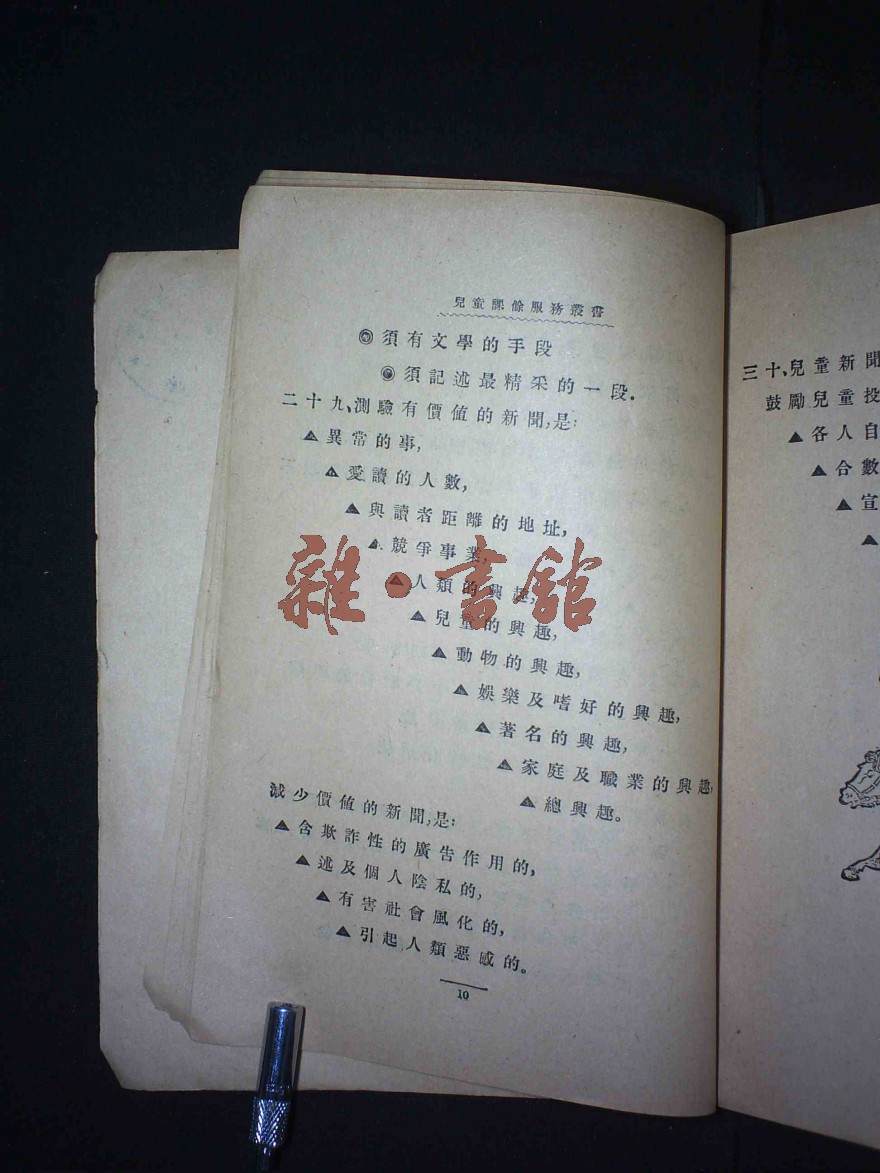 兒童課餘服務叢書
◎須有文學的手段
◎須記述最精采的一段.
二十九、測驗有價值的新聞,是:
▲異常的事,
▲愛讀的人數,
▲與讀者距離的地址,
▲競爭事業,
▲人類的興趣,
▲兒童的興趣,
▲動物的興趣,
▲娛樂及嗜好的興趣,
▲著名的興趣,
▲家庭及職業的興趣,
▲總興趣。
減少價值的新聞,是:
▲含欺詐性的廣告作用的,
▲述及個人陰私的,
▲有害社會風化的,
▲引起人類惡感的。
10
三十、兒童新聞
鼓勵兒童投
▲各人自
▲合數
▲宣
▲
雜·書館